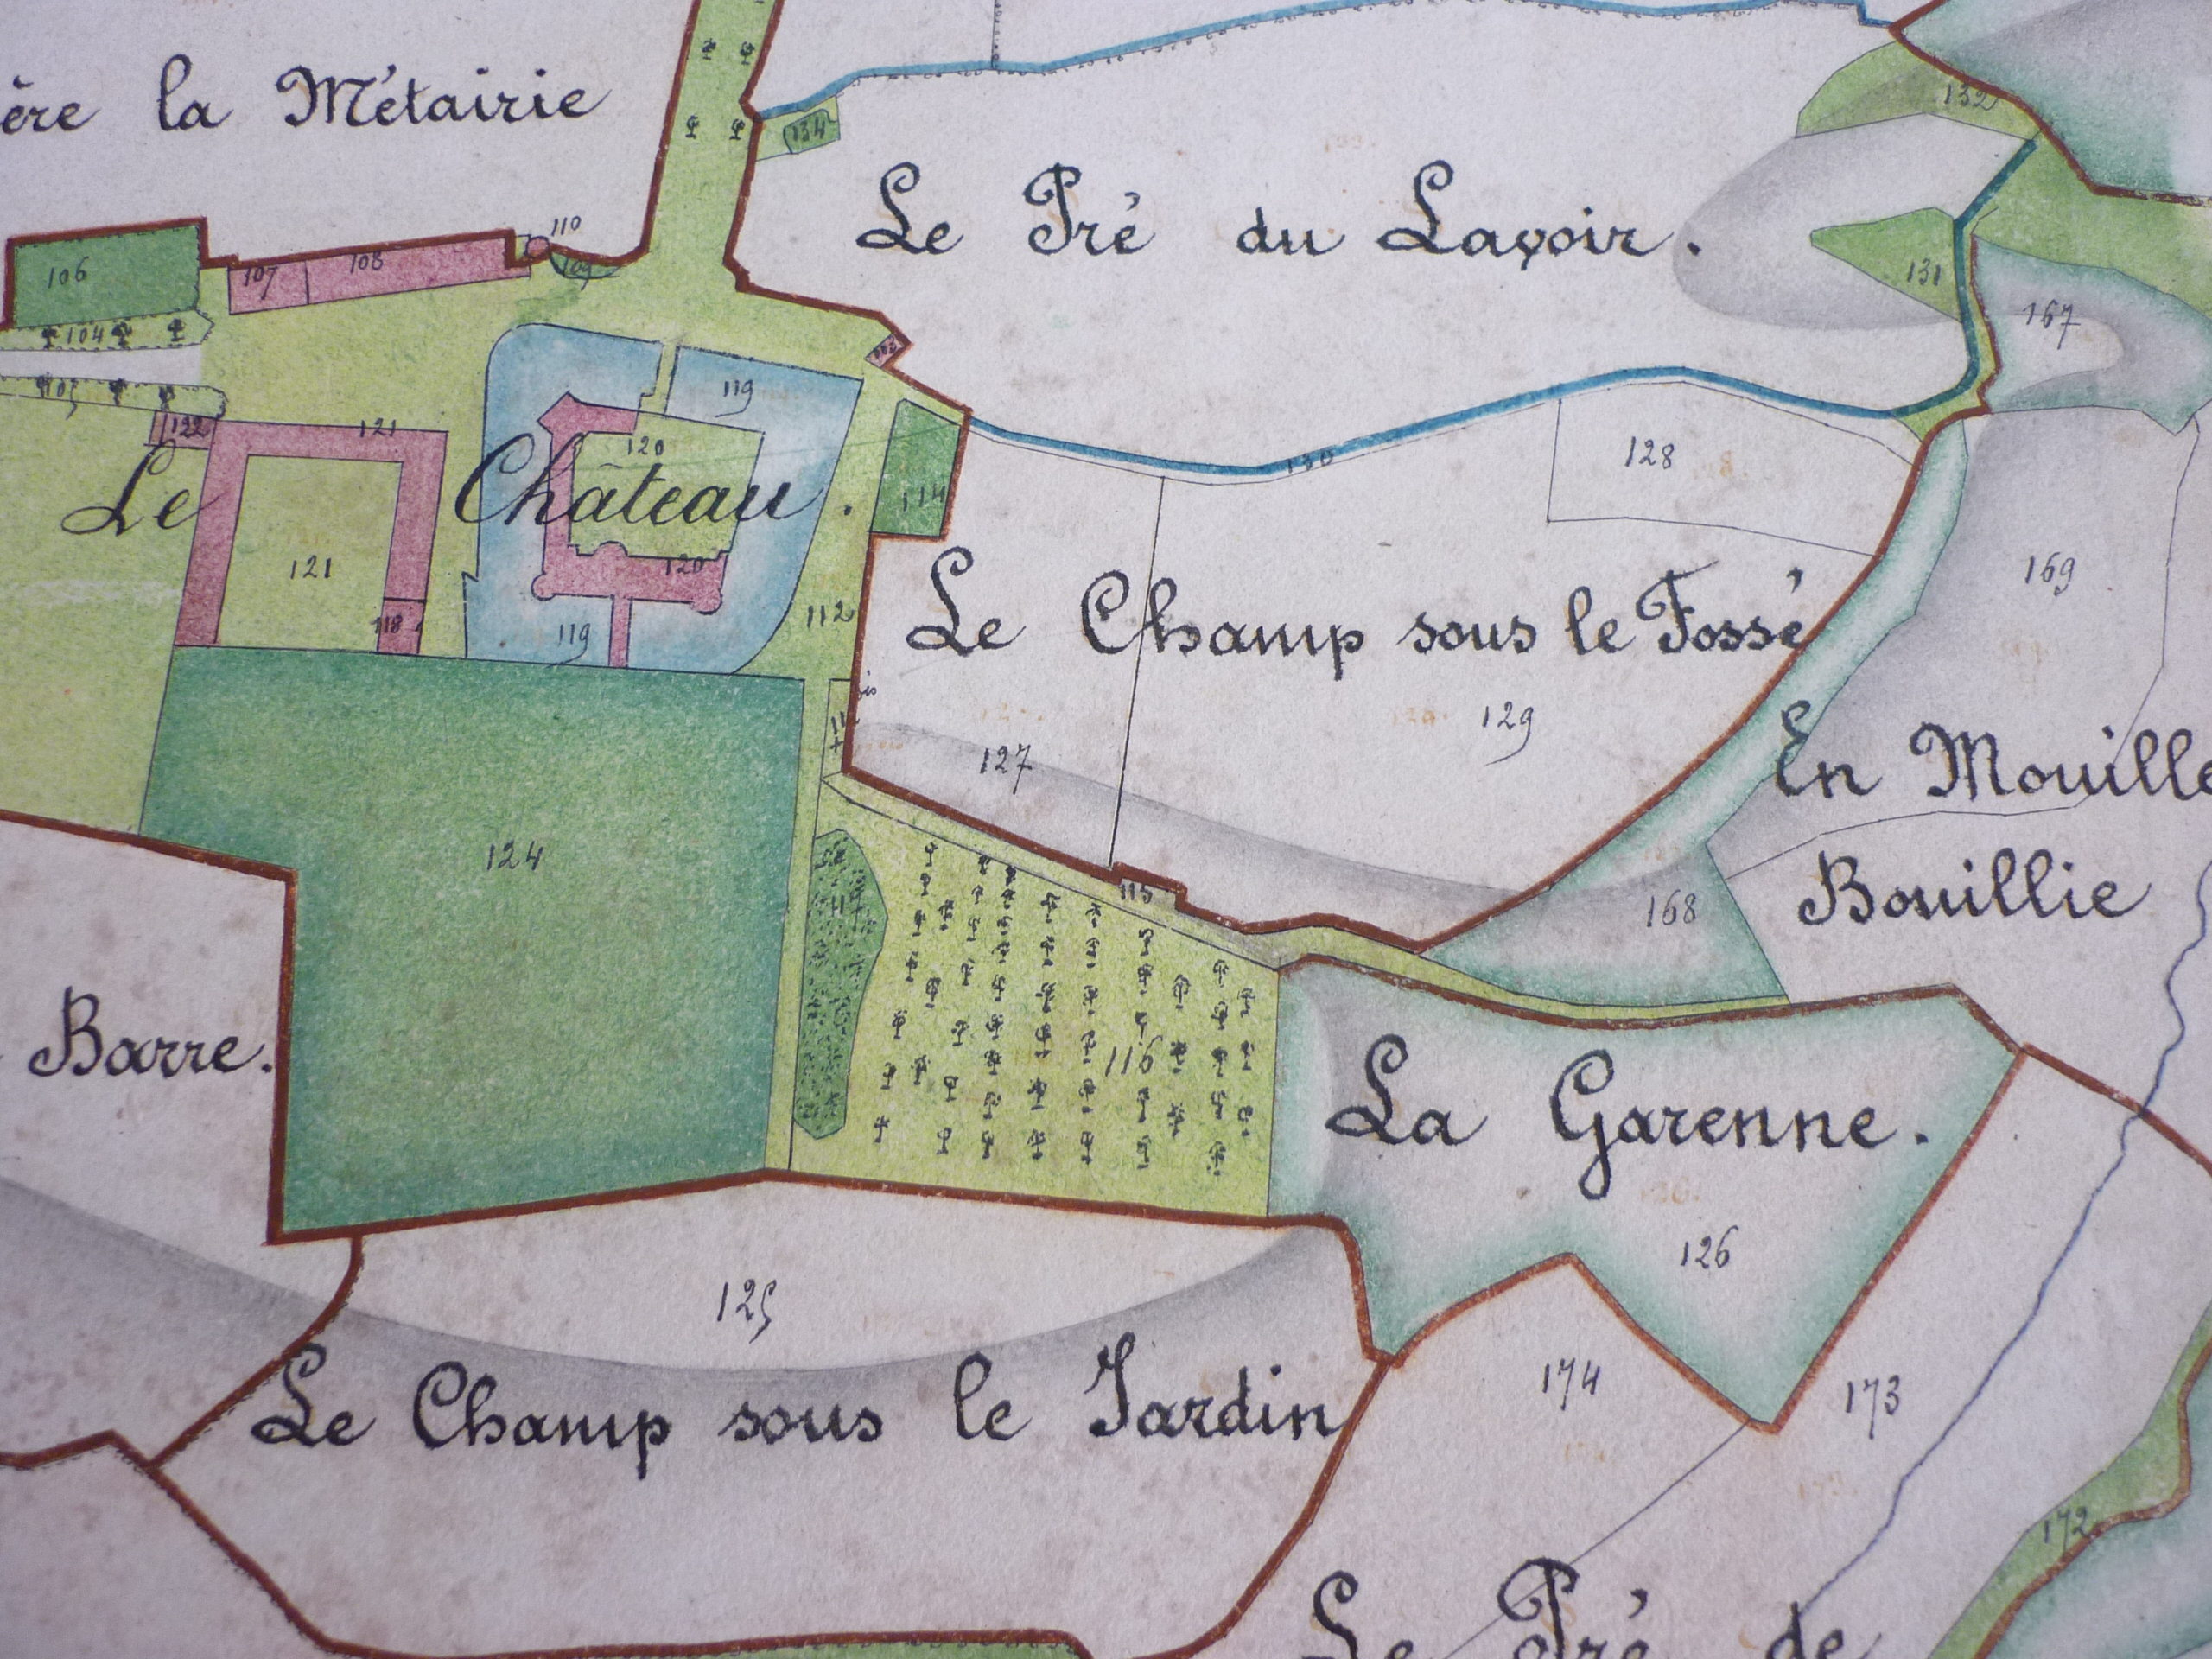 ère la Métairie
134
132
Le Pré du Lavoir.
110
106
107
108
109
131
104
167
105
119
122
121
120
128
130
Le Château.
114
121
169
120
118
119
112
Le Champ sous le Fossé
129
127
En Mouille
124
115
168
Bouillie
Barre.
116
La Garenne.
126
125
174
173
Le Champ sous le Jardin
172
Le Pré de